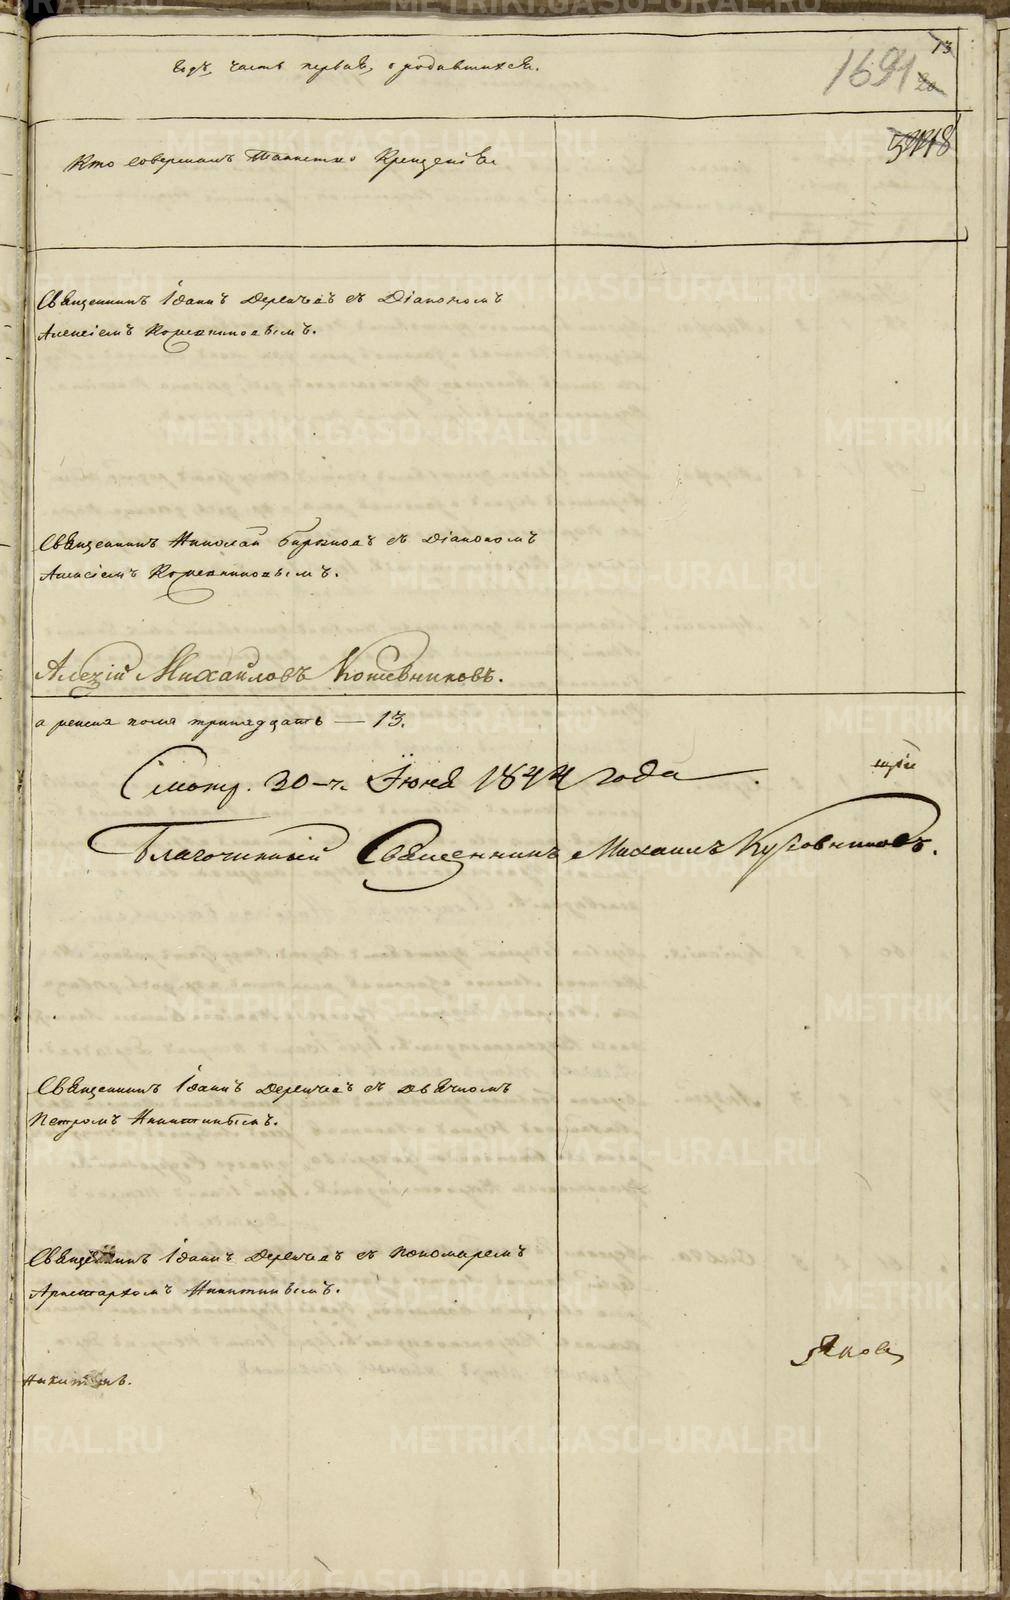 13
годъ, часть первая, о родившихся.
1691
20
Кто совершалъ Таинство Крещенія.
Священникъ Іоаннъ Деречевъ съ Діакономъ
Алексіемъ Кожевниковымъ.
Священникъ Николай Бирюковъ съ Діакономъ
Алексіемъ Кожевниковымъ.
Алекзій Михайловъ Кожевниковъ.
а женска пола тринадцать — 13.
Смотр. 30-го Іюня 1844 года.
Благочинный Священникъ Михаилъ Кузовниковъ.
Священникъ Іоаннъ Деречевъ съ Дьячкомъ
Петромъ Никитинымъ.
Священникъ Іоаннъ Деречевъ съ Пономаремъ
Аристархомъ Никитинымъ.
Никитинъ.
METRIKI.GASO-URAL.RU